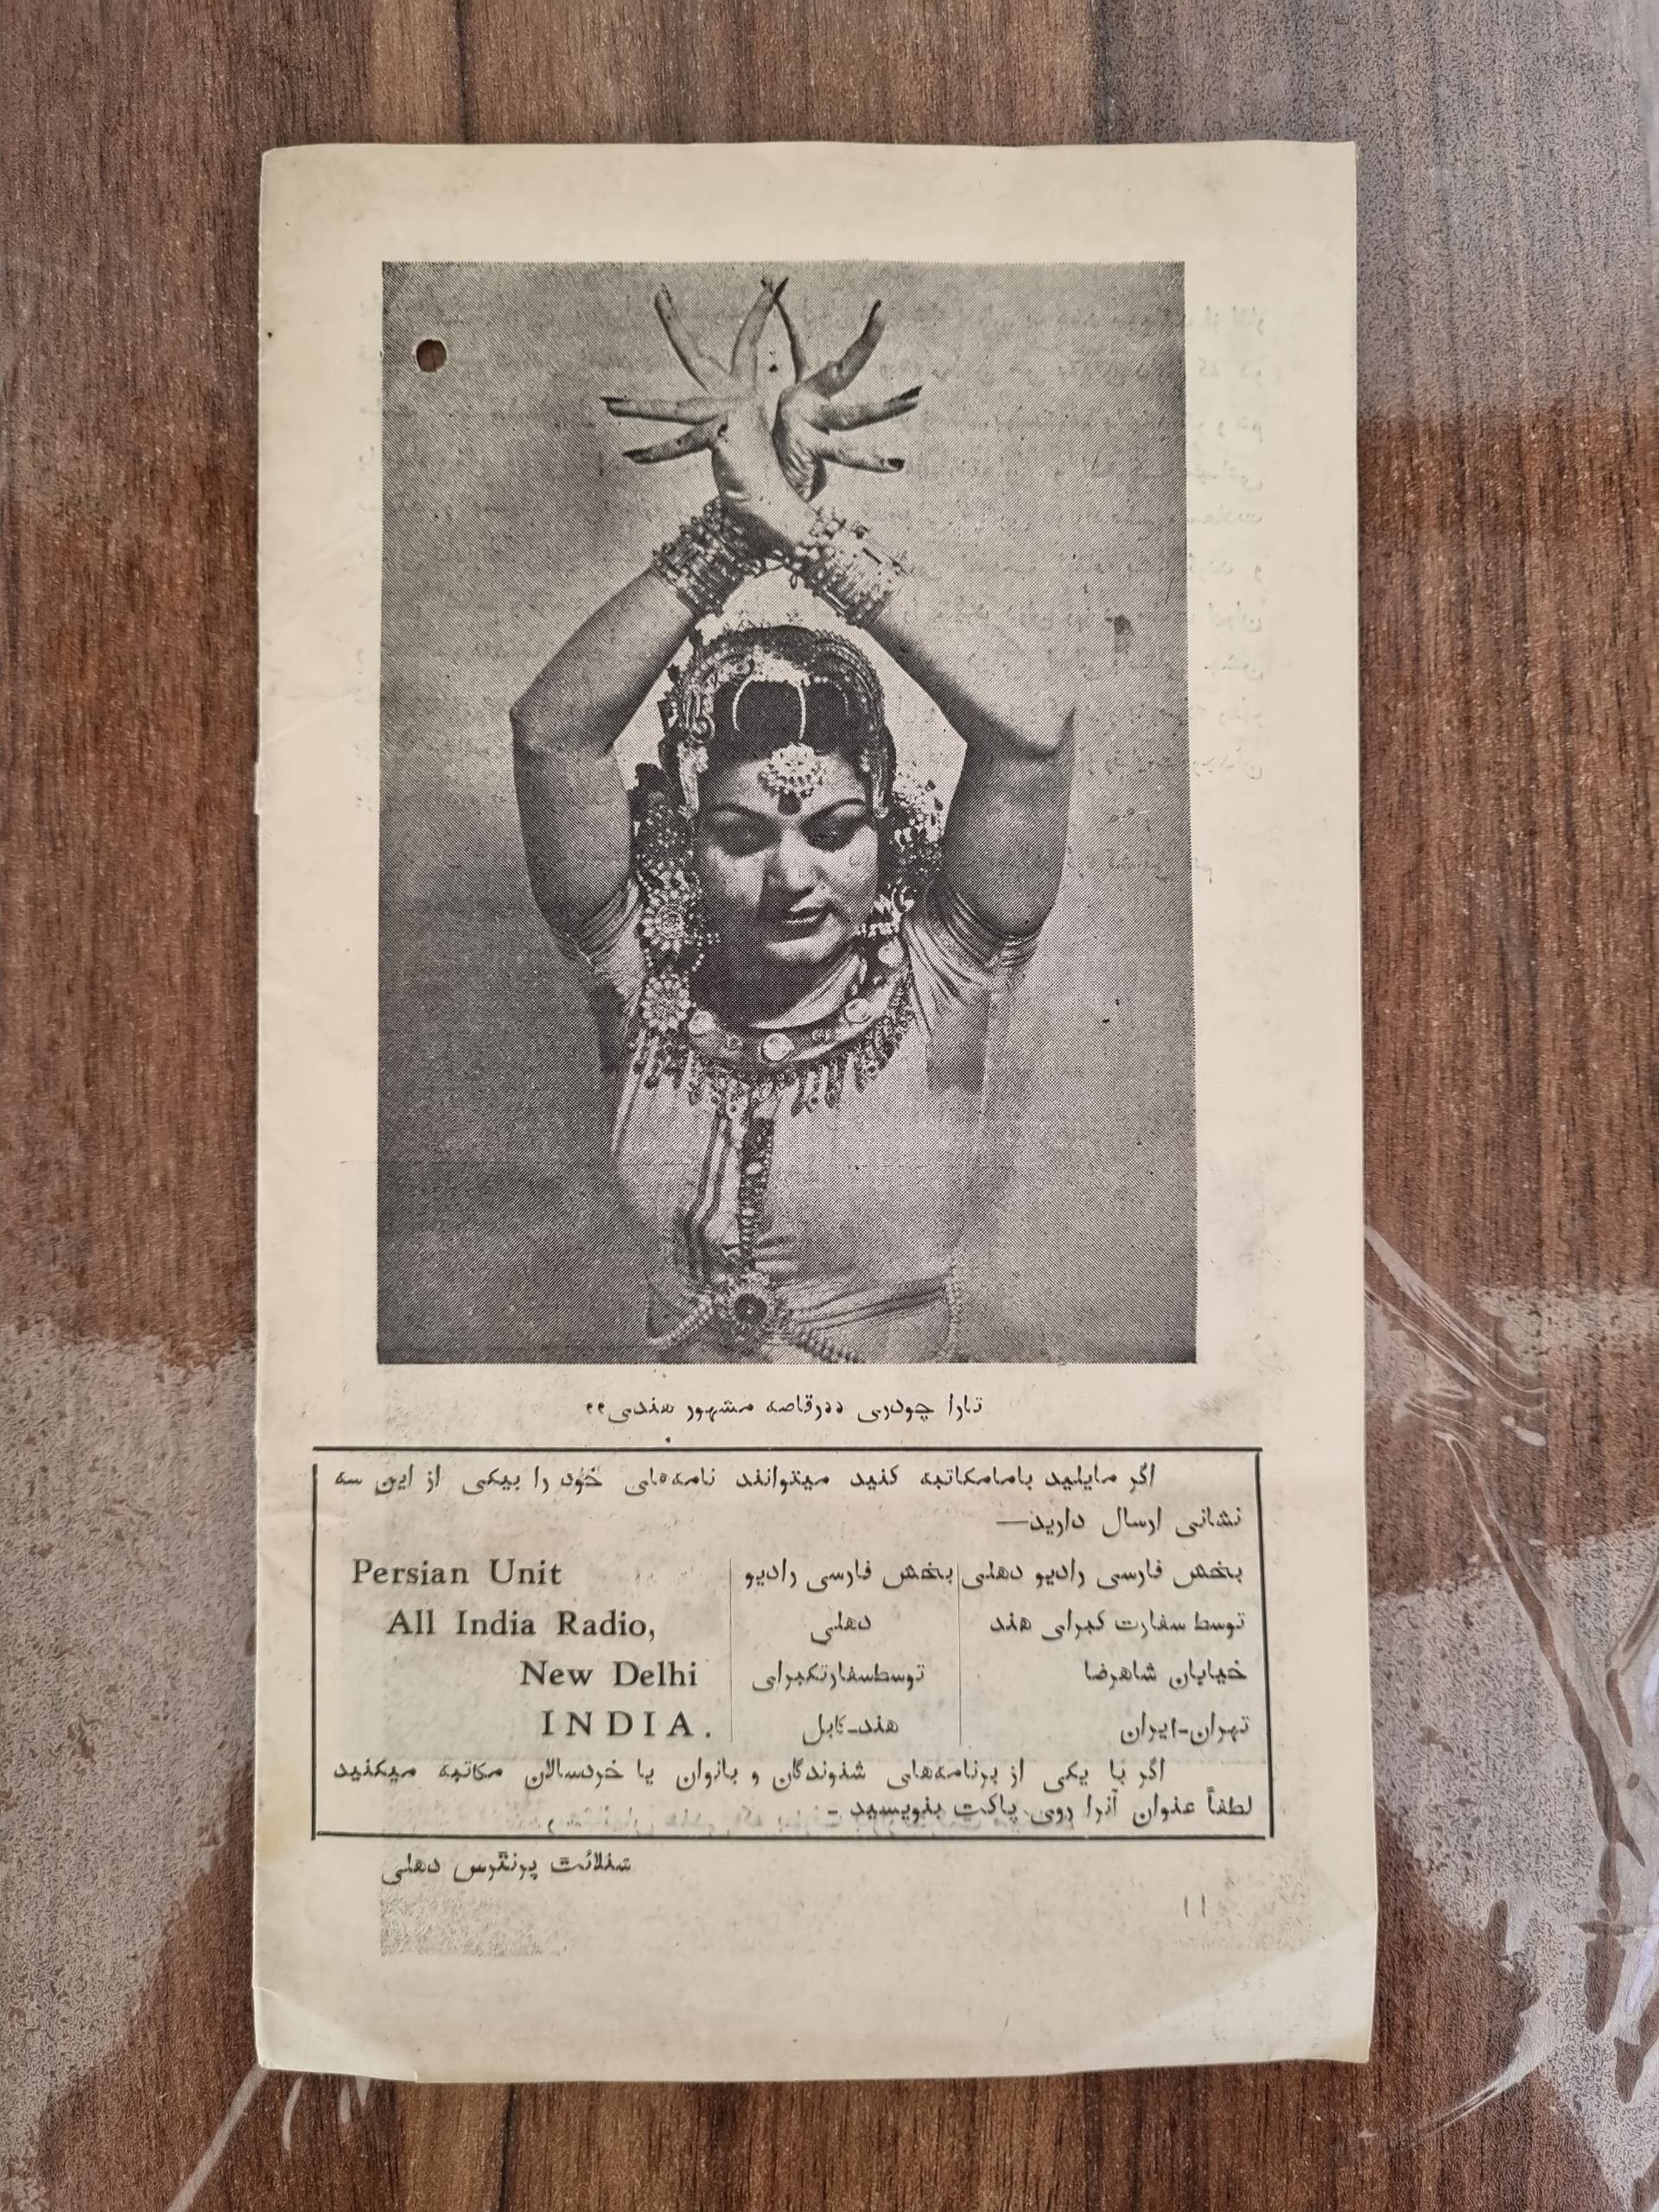 تارا چودری ,,رقاصه مشهور هندی,,
اگر مایلید بامامکاتبه کنید میتوانند نامه‌های خود را بیکی از این سه
نشانی ارسال دارید—
بخش فارسی رادیو دهلی
توسط سفارت کبرای هند
خیابان شاهرضا
تهران-ایران
بخش فارسی رادیو
دهلی
توسطسفارتکبرای
هند-کابل
Persian Unit
All India Radio,
New Delhi
INDIA.
اگر با یکی از برنامه‌های شنوندگان و بانوان یا خردسالان مکاتبه میکنید
لطفاً عنوان آنرا روی پاکت بنویسید -
پرنٹرس دهلی
۱۱